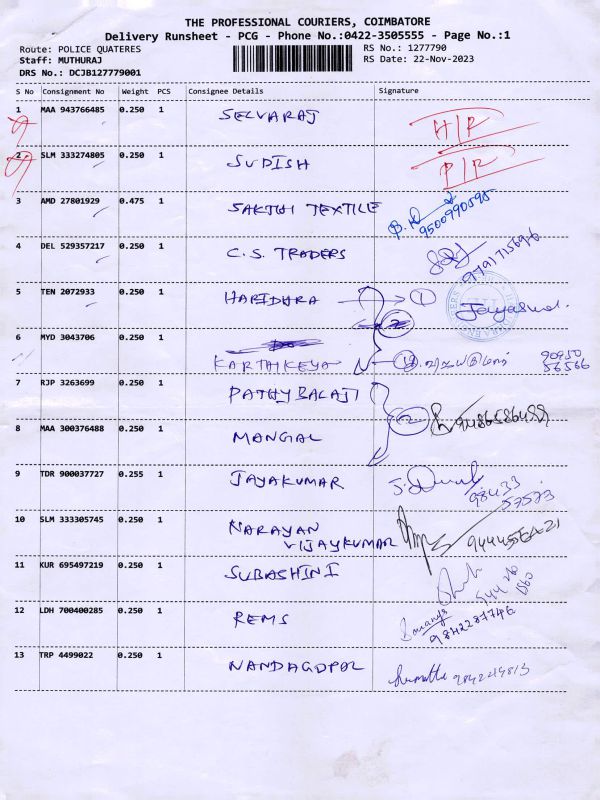 THE PROFESSIONAL COURIERS, COIMBATORE
Delivery Runsheet - PCG - Phone No.:0422-3505555 - Page No.:1
Route: POLICE QUATERES RS No.: 1277790
Staff: MUTHURAJ RS Date: 22-Nov-2023
DRS No.: DCJB127779001
S No Consignment No Weight PCS Consignee Details Signature
1 MAA 943766485 0.250 1 SELVARAJ
2 SLM 333274805 0.250 1 SUDISH
3 AMD 27801929 0.475 1 SAKTHI TEXTILE
9500990595
4 DEL 529357217 0.250 1 C.S. TRADERS
5 TEN 2072933 0.250 1 HARIDHRA 1
6 MYD 3043706 0.250 1
KARTHIKEYA 90950
56566
7 RJP 3263699 0.250 1 PATHY BALAJI
8 MAA 300376488 0.250 1 MANGAL 2 9486586499
9 TDR 900037727 0.255 1 JAYAKUMAR 98433
57573
10 SLM 333305745 0.250 1 NARAYAN
VIJAYKUMAR
11 KUR 695497219 0.250 1 SUBASHINI
12 LDH 700400285 0.250 1 REMS
9842287746
13 TRP 4499022 0.250 1 NANDAGOPOL